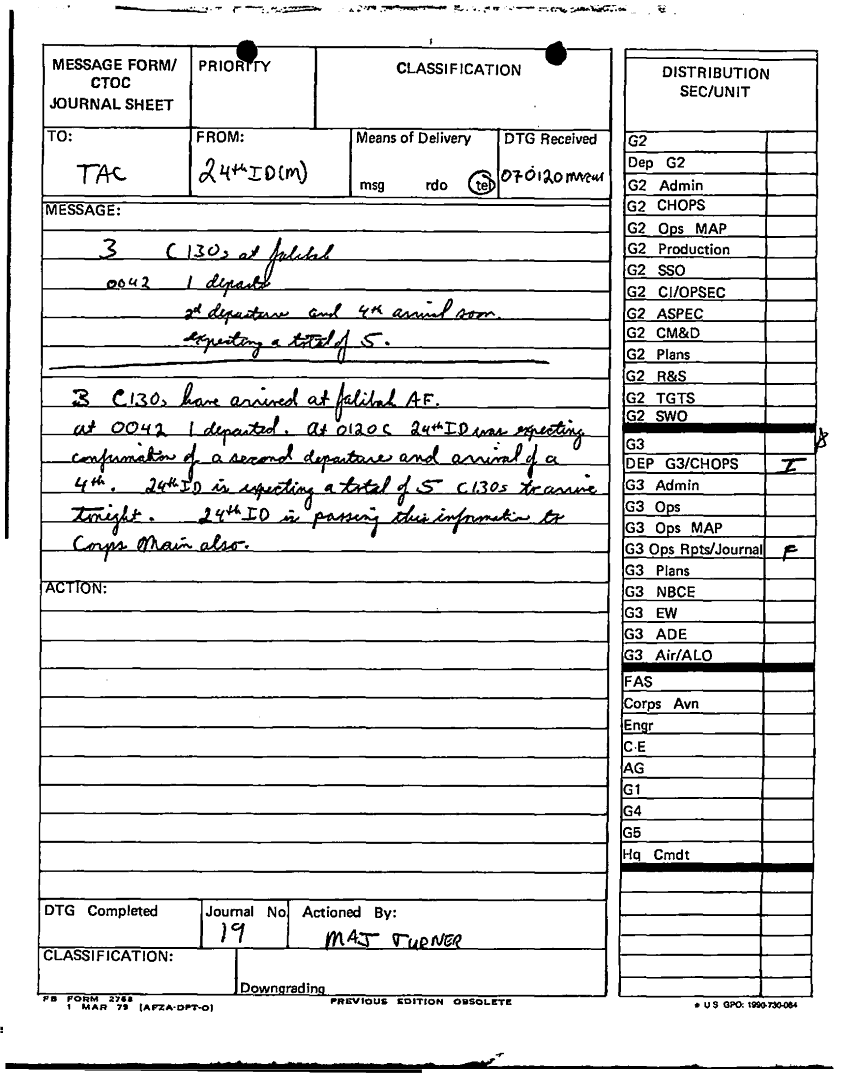 MESSAGE FORM/
CTOC
JOURNAL SHEET
PRIORITY
CLASSIFICATION
TO:
TAC
FROM:
24th ID(M)
Means of Delivery
msg rdo tel
DTG Received
070120 MAR91
MESSAGE:
3 C130s at Jalibah
0042 1 departs
2d departure and 4th arrival soon.
expecting a total of 5.
3 C130s have arrived at Jalibah AF.
at 0042 1 departed. At 0120C 24th ID was expecting
confirmation of a second departure and arrival of a
4th. 24th ID is expecting a total of 5 C130s to arrive
tonight. 24th ID is passing this information to
Corps Main also.
ACTION:
DTG Completed
Journal No.
19
Actioned By:
MAJ TURNER
CLASSIFICATION:
Downgrading
FB FORM 2768
1 MAR 79 (AFZA-DPT-O)
PREVIOUS EDITION OBSOLETE
DISTRIBUTION
SEC/UNIT
G2
Dep G2
G2 Admin
G2 CHOPS
G2 Ops MAP
G2 Production
G2 SSO
G2 CI/OPSEC
G2 ASPEC
G2 CM&D
G2 Plans
G2 R&S
G2 TGTS
G2 SWO
G3
DEP G3/CHOPS I
G3 Admin
G3 Ops
G3 Ops MAP
G3 Ops Rpts/Journal F
G3 Plans
G3 NBCE
G3 EW
G3 ADE
G3 Air/ALO
FAS
Corps Avn
Engr
C-E
AG
G1
G4
G5
Hq Cmdt
U S GPO: 1990-730-084